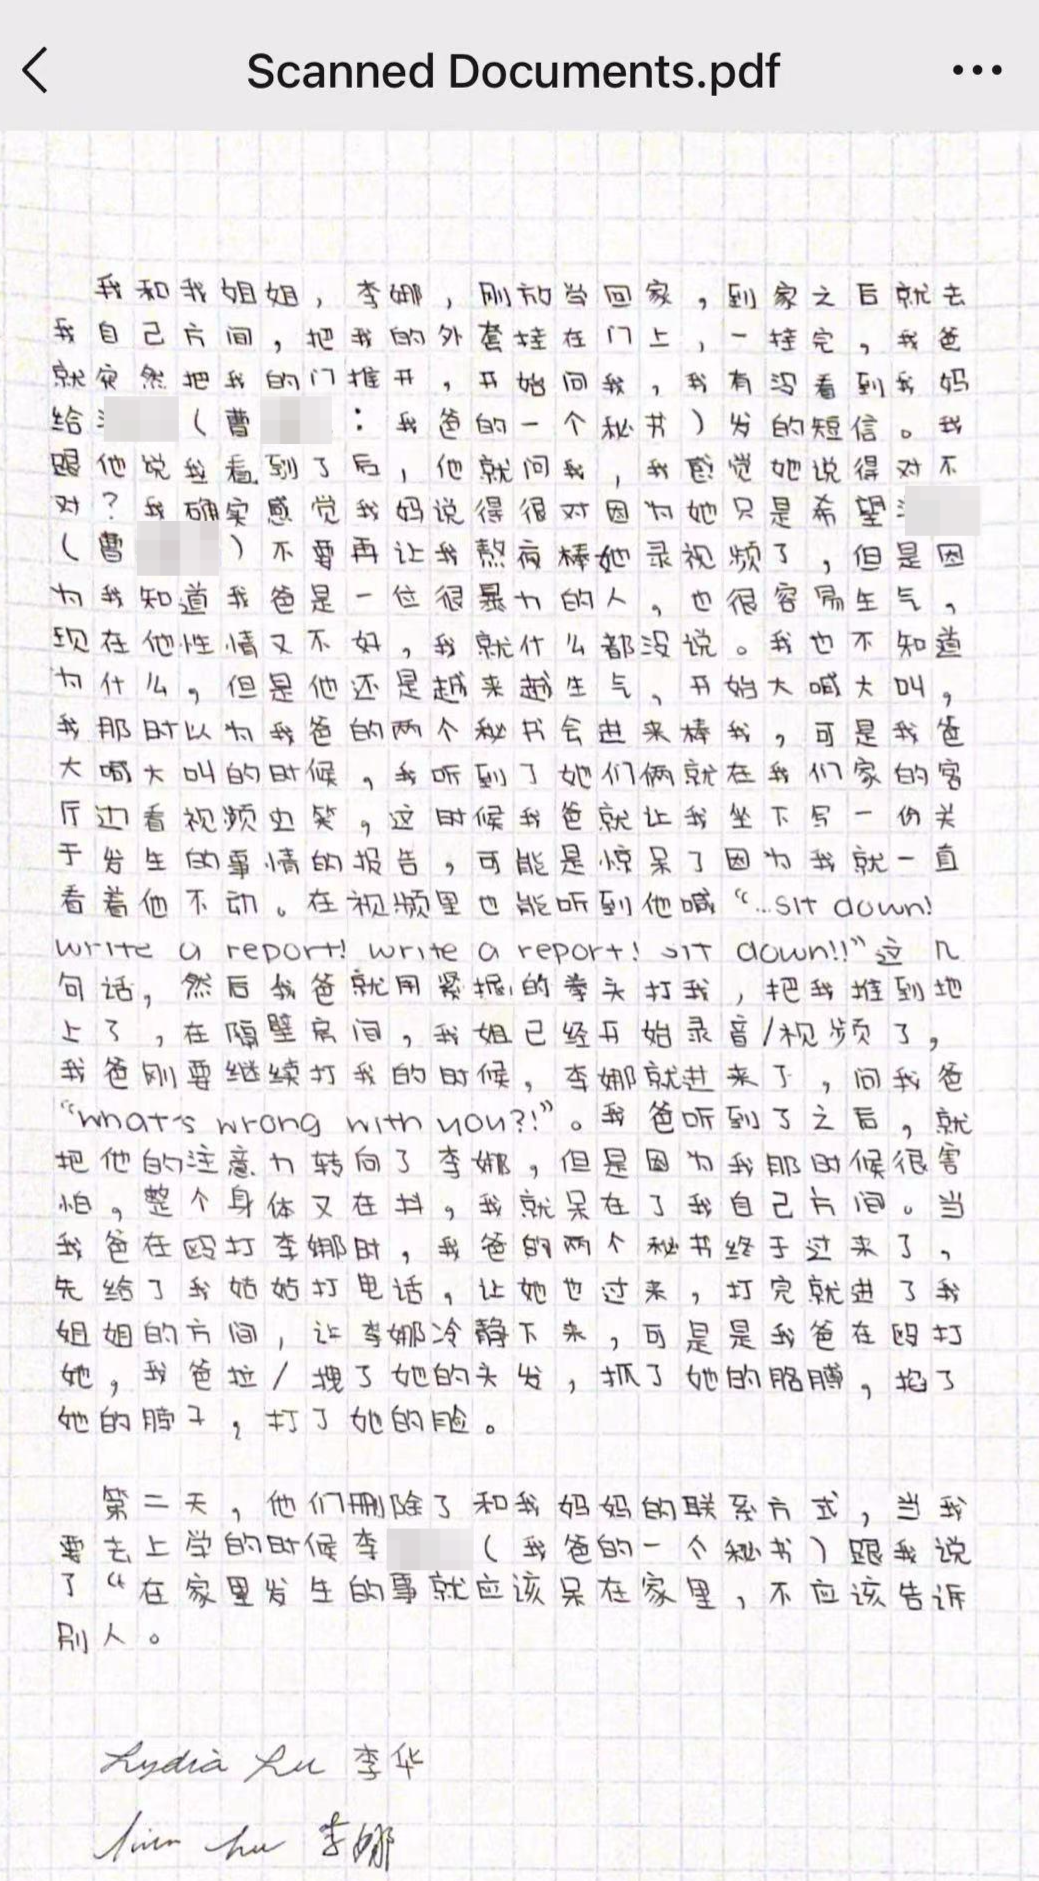 Scanned Documents.pdf
我和我姐姐，李娜，刚放学回家，到家之后就去
我自己房间，把我的外套挂在门上，一挂完，我爸
就突然把我的门推开，开始问我，我有没看到我妈
给（曹：我爸的一个秘书）发的短信。我
跟他说我看到了后，他就问我，我感觉她说得对不
对？我确实感觉我妈说得很对因为她只是希望
（曹）不要再让我熬夜棒她录视频了，但是因
为我知道我爸是一位很暴力的人，也很容易生气，
现在他性情又不好，我就什么都没说。我也不知道
为什么，但是他还是越来越生气，开始大喊大叫，
我那时以为我爸的两个秘书会进来棒我，可是我爸
大喊大叫的时候，我听到了她们俩就在我们家的客
厅边看视频边笑，这时候我爸就让我坐下写一份关
于发生的事情的报告，可能是惊呆了因为我就一直
看着他不动。在视频里也能听到他喊“...sit down!
write a report! write a report! sit down!!”这几
句话，然后我爸就用紧握的拳头打我，把我推到地
上了，在隔壁房间，我姐已经开始录音/视频了，
我爸刚要继续打我的时候，李娜就进来了，问我爸
“what's wrong with you?!”。我爸听到了之后，就
把他的注意力转向了李娜，但是因为我那时候很害
怕，整个身体又在抖，我就呆在了我自己房间。当
我爸在殴打李娜时，我爸的两个秘书终于过来了，
先给了我姑姑打电话，让她也过来，打完就进了我
姐姐的房间，让李娜冷静下来，可是是我爸在殴打
她，我爸拉/拽了她的头发，抓了她的胳膊，掐了
她的脖子，打了她的脸。
第二天，他们删除了和我妈妈的联系方式，当我
要去上学的时候李（我爸的一个秘书）跟我说
了“在家里发生的事就应该呆在家里，不应该告诉
别人。
Lydia Lu 李华
李娜